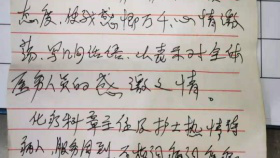 态度,使我感慨万千,心情激
荡,写几句话语,以表示对全体
医务人员的感激之情。
化疗科章主任及护士热情待
病人,服务周到